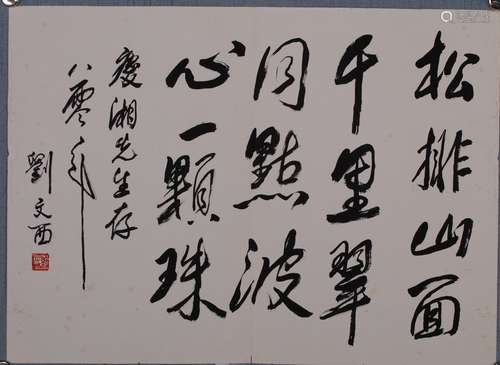 松排山面
千重翠
月點波
心一顆珠
慶湘先生存
八零年
劉文西